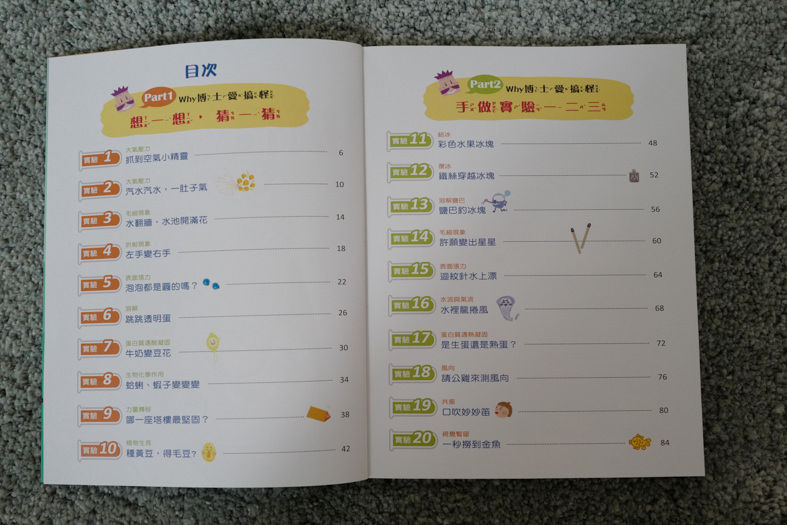 目次
Part1 Why博士愛搞怪
想一想，猜一猜
實驗 1 大氣壓力
抓到空氣小精靈 6
實驗 2 大氣壓力
汽水汽水，一肚子氣 10
實驗 3 毛細現象
水翻牆，水池開滿花 14
實驗 4 折射現象
左手變右手 18
實驗 5 表面張力
泡泡都是圓的嗎？ 22
實驗 6 溶解
跳跳透明蛋 26
實驗 7 蛋白質遇酸凝固
牛奶變豆花 30
實驗 8 生物化學作用
蛤蜊、蝦子變變變 34
實驗 9 力量轉移
哪一座塔樓最堅固？ 38
實驗 10 植物生長
種黃豆，得毛豆？ 42
Part2 Why博士愛搞怪
手做實驗一二三
實驗 11 結冰
彩色水果冰塊 48
實驗 12 復冰
鐵絲穿越冰塊 52
實驗 13 溶解鹽巴
鹽巴釣冰塊 56
實驗 14 毛細現象
許願變出星星 60
實驗 15 表面張力
迴紋針水上漂 64
實驗 16 水流與氣流
水裡龍捲風 68
實驗 17 蛋白質遇熱凝固
是生蛋還是熟蛋？ 72
實驗 18 風向
請公雞來測風向 76
實驗 19 共振
口吹妙妙笛 80
實驗 20 視覺暫留
一秒撈到金魚 84